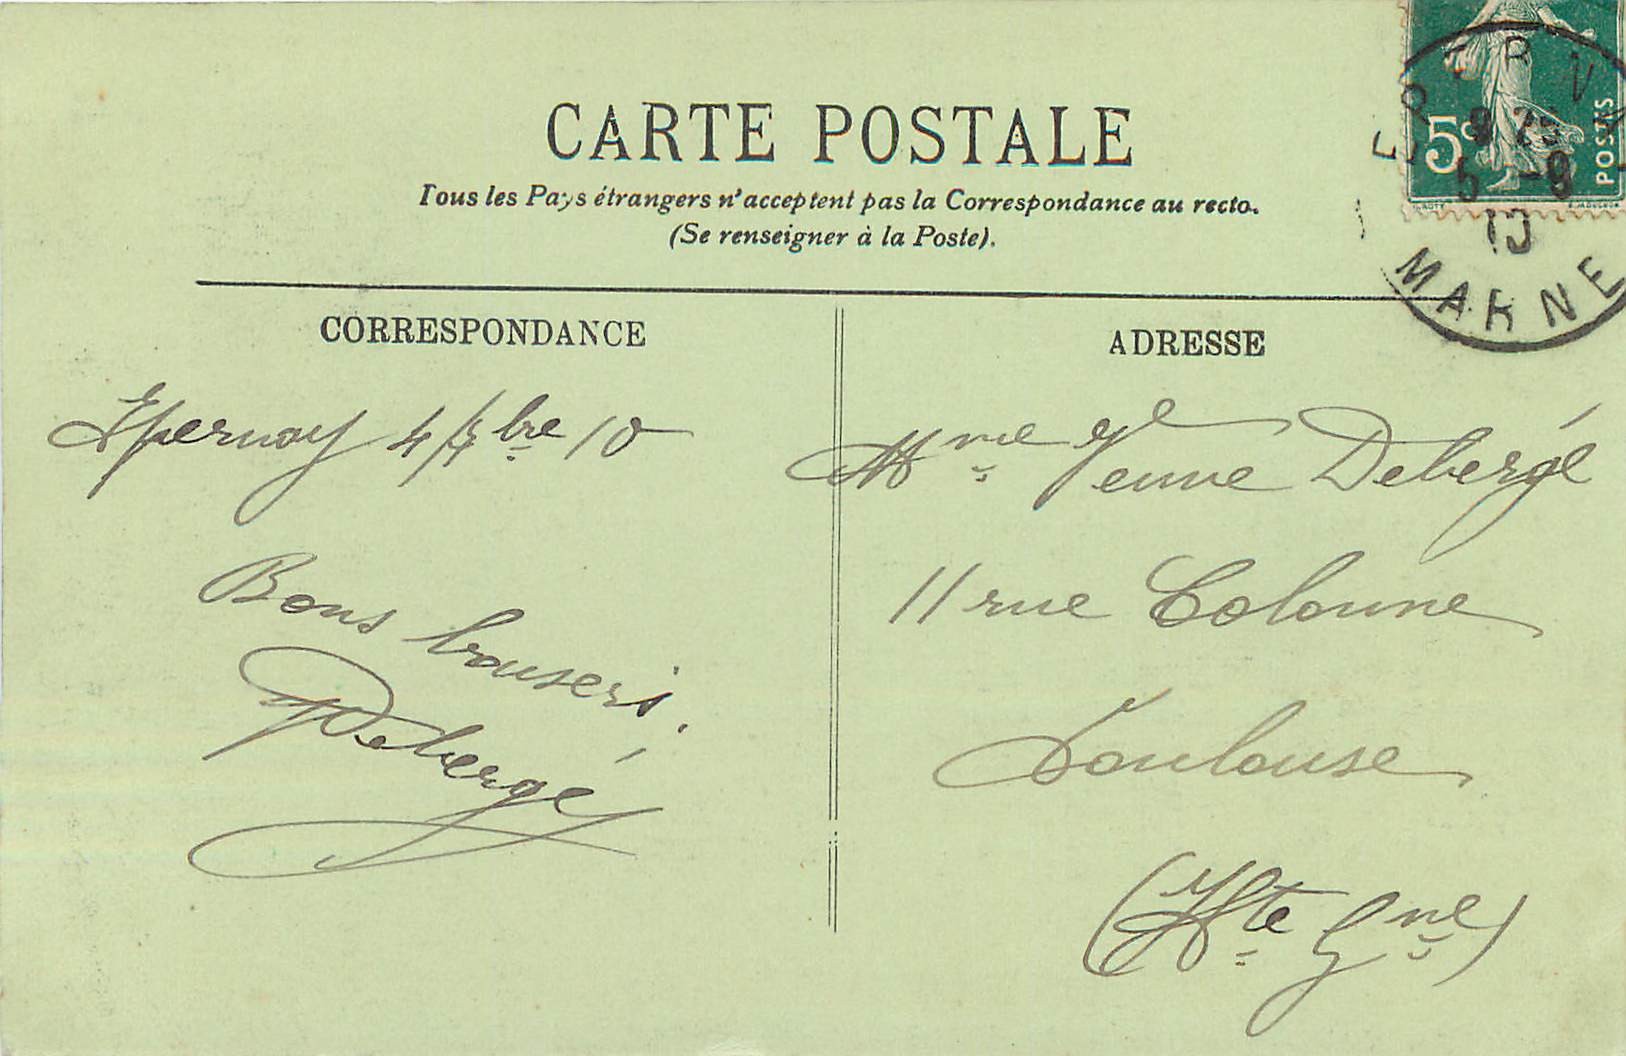 CARTE POSTALE
Tous les Pays étrangers n'acceptent pas la Correspondance au recto.
(Se renseigner à la Poste).
5c
POSTES
EPERNAY
5 -9
10
MARNE
CORRESPONDANCE
Epernay 4 7bre 10
Bons baisers.
Debergé
ADRESSE
Mme Veuve Debergé
11 rue Colonne
Toulouse
(Hte Gne)